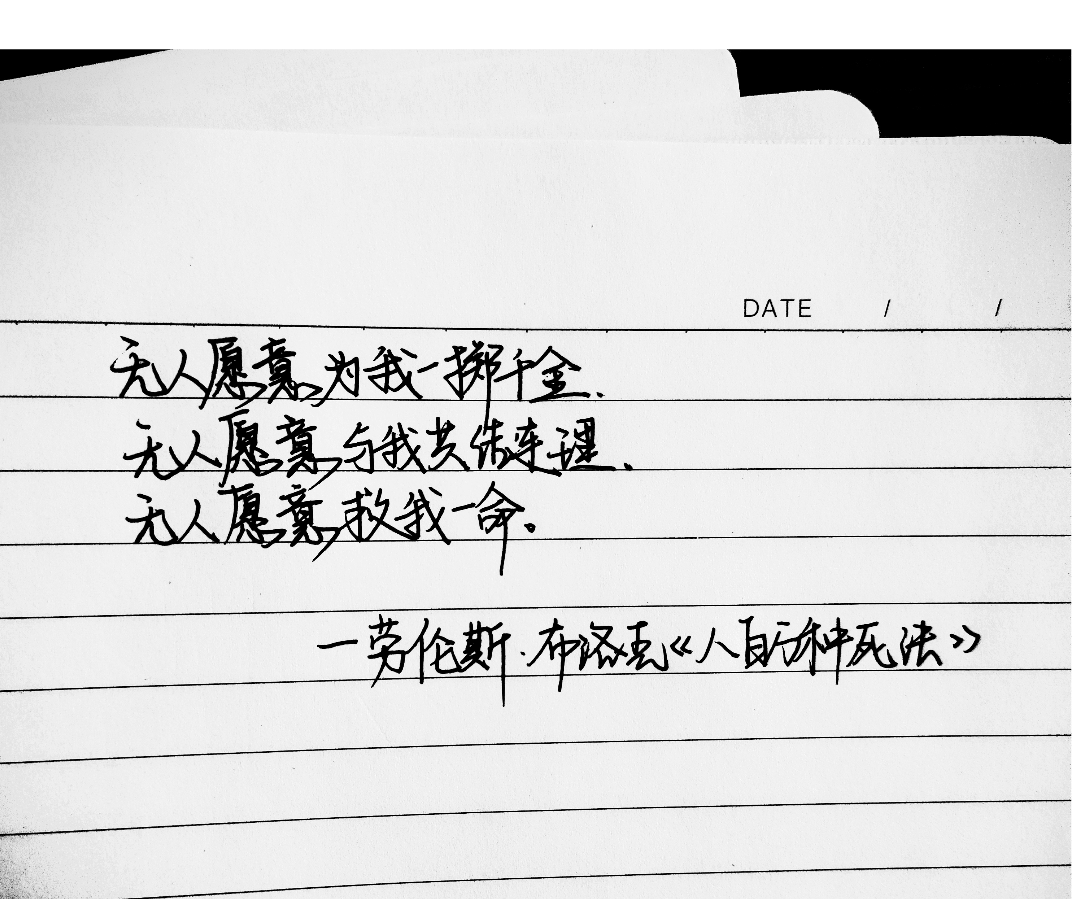 DATE / /
无人愿意为我一掷千金.
无人愿意与我共结连理.
无人愿意救我一命。
—劳伦斯·布洛克《八百万种死法》